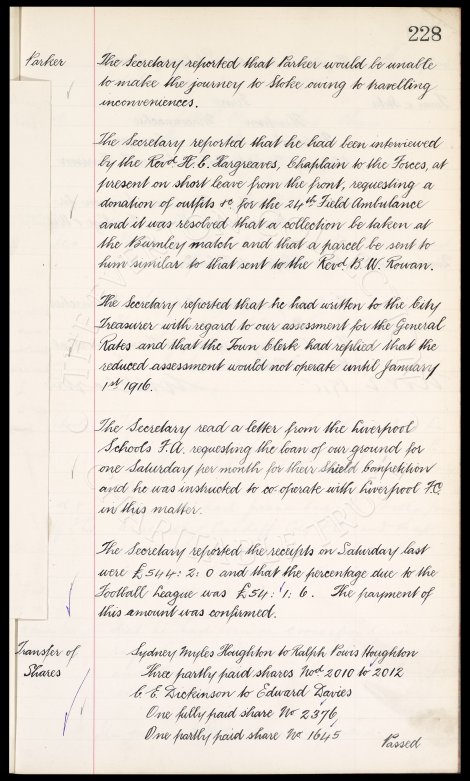 228
Parker The Secretary reported that Parker would be unable
to make the journey to Stoke owing to travelling
inconveniences.
The Secretary reported that he had been interviewed
by the Revd. H. C. Hargreaves, Chaplain to the Forces, at
present on short leave from the front, requesting a
donation of outfits &c. for the 24th Field Ambulance
and it was resolved that a collection be taken at
the Burnley match and that a parcel be sent to
him similar to that sent to the Revd. B. W. Rowan.
The Secretary reported that he had written to the City
Treasurer with regard to our assessment for the General
Rates and that the Town Clerk had replied that the
reduced assessment would not operate until January
1st 1916.
The Secretary read a letter from the Liverpool
Schools F.A. requesting the loan of our ground for
one Saturday per month for their Shield Competition
and he was instructed to co-operate with Liverpool F.C.
in this matter.
The Secretary reported the receipts on Saturday last
were £544: 2: 0 and that the percentage due to the
Football League was £54: 1: 6. The payment of
this amount was confirmed.
Transfer of Sydney Myles Houghton to Ralph Powis Houghton
Shares Three partly paid shares Nod 2010 to 2012
C. E. Dickinson to Edward Davies
One fully paid share No 2376
One partly paid share No 1645
Passed